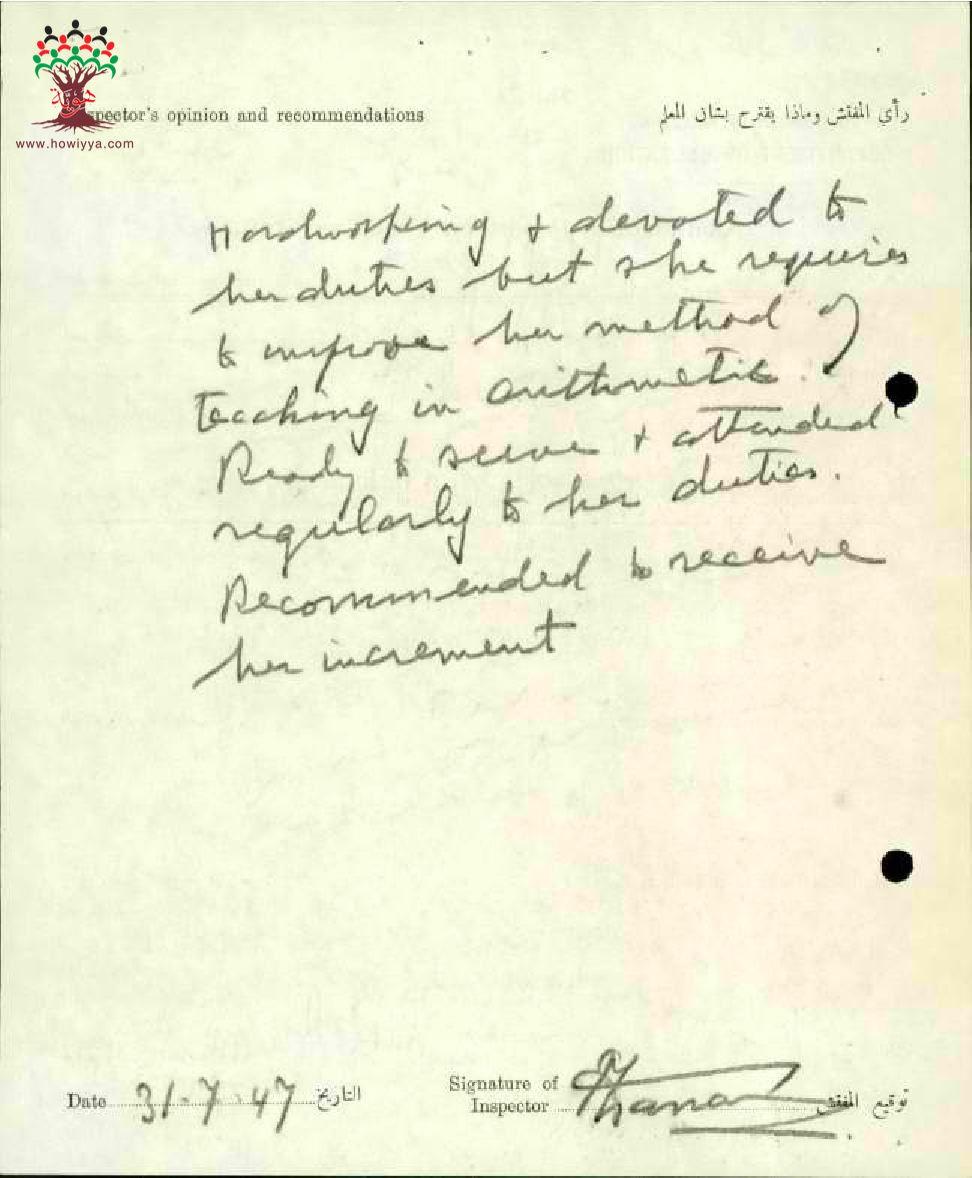 هوية
www.howiyya.com
spector's opinion and recommendations
رأي المفتش وماذا يقترح بشأن المعلم
Hardworking & devoted to
her duties but she requires
to improve her method of
teaching in arithmetic.
Ready to serve & attended
regularly to her duties.
Recommended to receive
her increment
Date 31-7-47 التاريخ
Signature of
Inspector توقيع المفتش